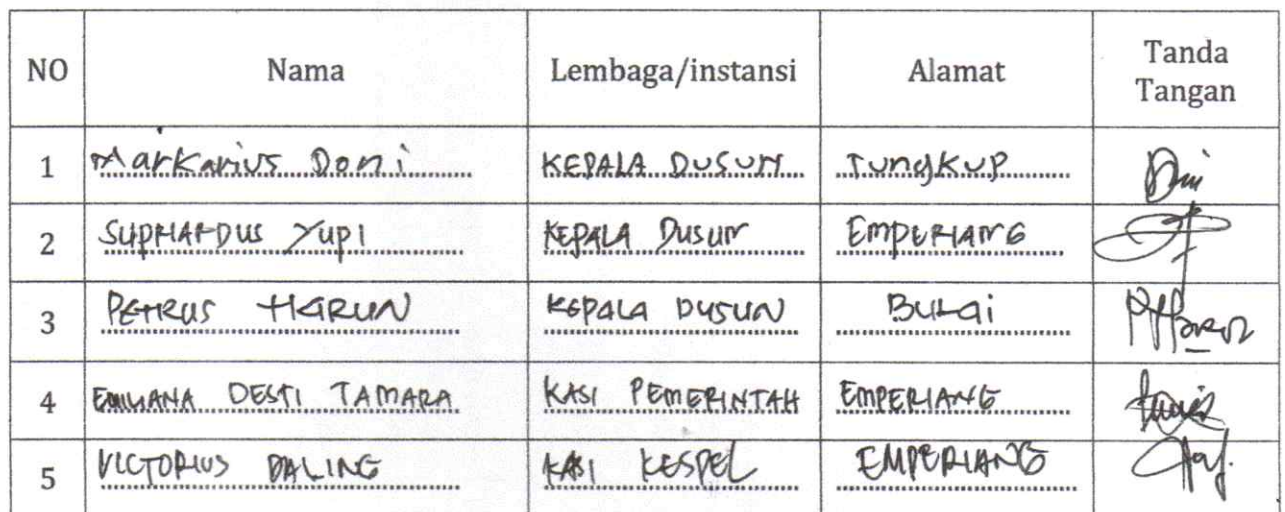 NO Nama Lembaga/instansi Alamat Tanda Tangan
1 Markarius Doni KEPALA DUSUN Tungkup
2 SUPHARDUS YUPI KEPALA DUSUN EMPERIANG
3 PETRUS HARUN KEPALA DUSUN BULAi
4 EMILIANA DESTI TAMARA KASI PEMERINTAH EMPERIANG
5 VICTORIUS DALING KASI KESPEL EMPERIANG